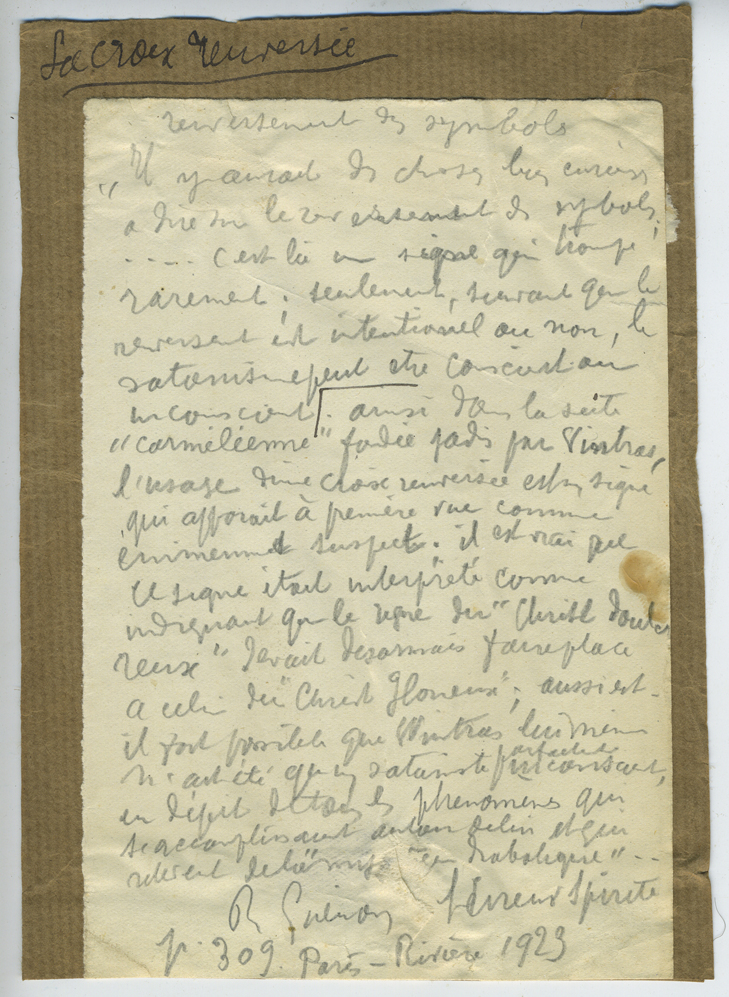 La croix renversée
renversement des symboles
"Il y aurait des choses bien curieuses
a dire sur le renversement des symboles,
..... c'est là un signe qui trompe
rarement ; seulement, suivant que le
renversement est intentionnel ou non, le
satanisme peut etre conscient ou
inconscient. ainsi dans la secte
"carméléenne" fondée jadis par Vintras,
l'usage d'une croix renversée est un signe
qui apparait à première vue comme
éminemment suspect. il est vrai que
ce signe était interprété comme
indiquant que le règne du "Christ doulou
reux" devait desormais faire place
a celui du "Christ glorieux" ; aussi est-
il fort possible que Vintras lui même
n'ait été qu'un sataniste parfaitement inconscient,
en dépit de tous les phénomènes qui
s'accomplissaient autour de lui et qui
relèvent de la "mystique diabolique"...
R Guénon l'Erreur Spirite
p. 309. Paris - Rivière 1923